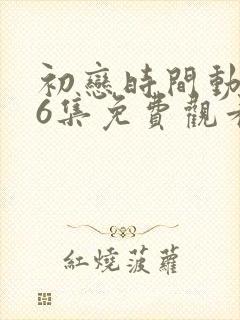 初戀時間動
6集免費觀看
紅燒菠蘿